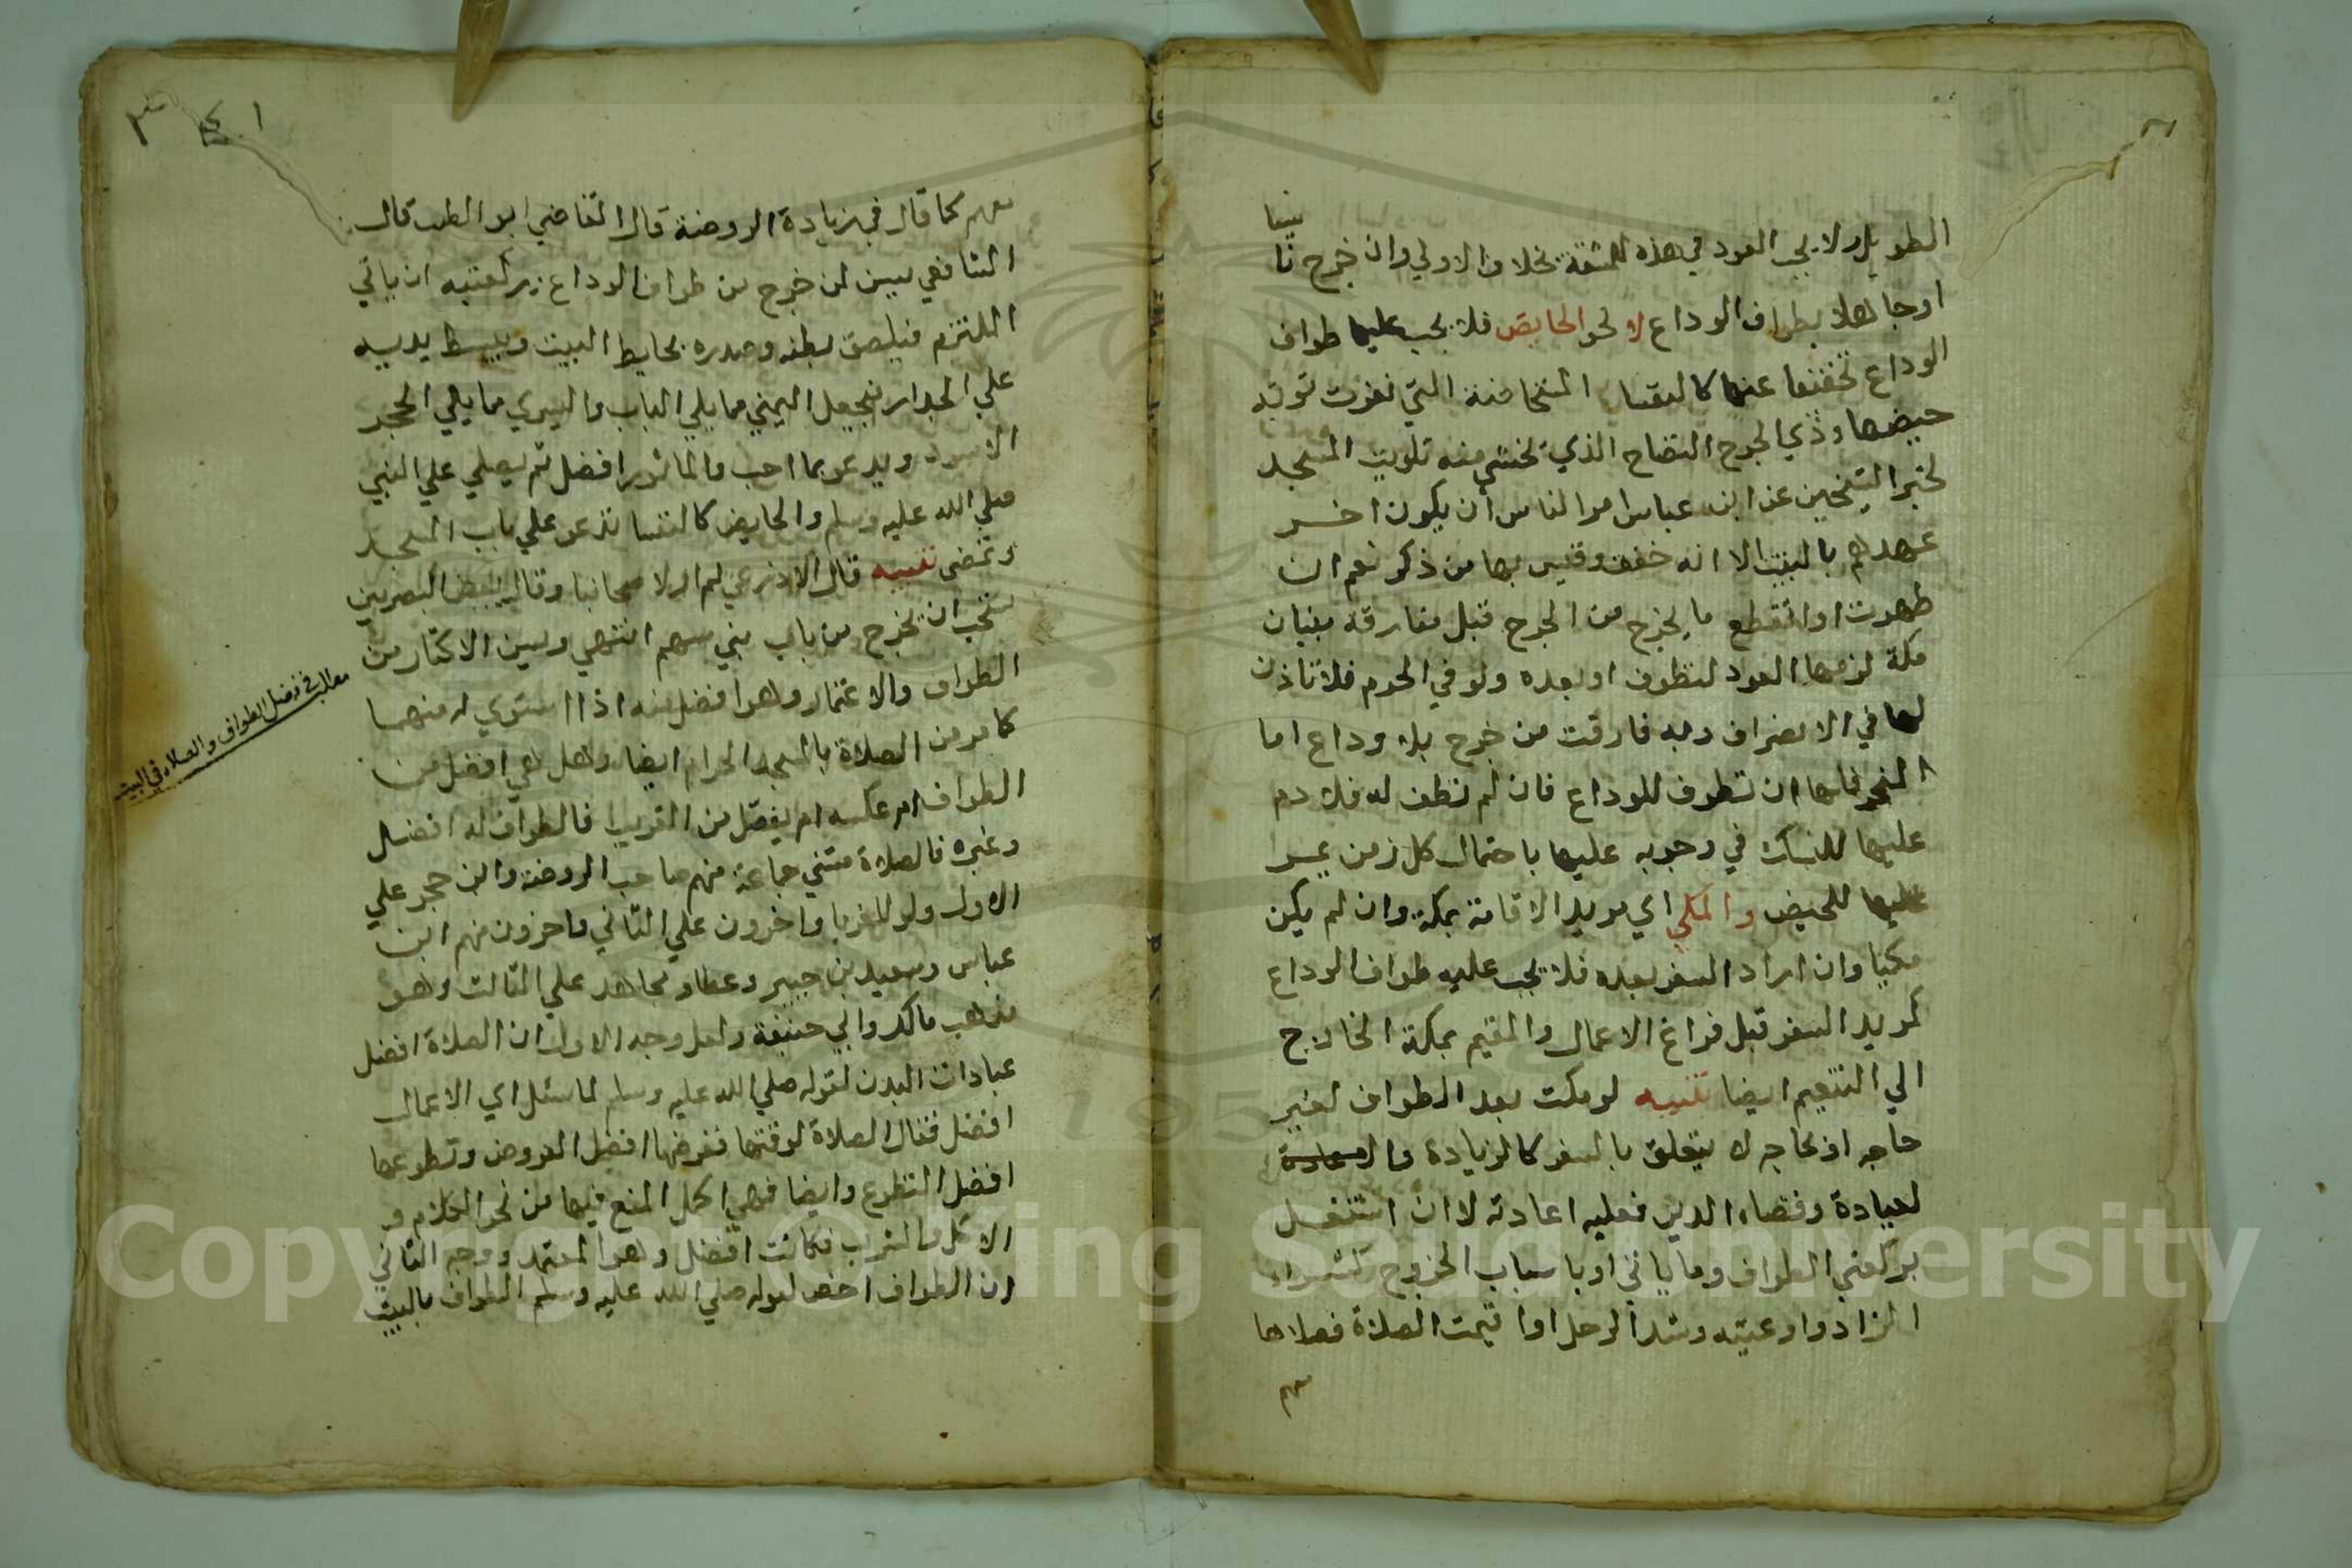 الطويل ولا يجب العود في هذه للمشقة بخلاف الاولي وان خرج نا
سيا
اوجاهلا بطواف الوداع لا نحو الحايض فلا يجب عليها طواف
الوداع تخفيفا عنها كالنفسا المتحاضنة التي نفرت نوبة
حيضها وذي الجرح النضاح الذي يخشي منه تلويث المسجد
لخبر الشيخين عن ابن عباس امر الناس أن يكون اخر
عهدهم بالبيت الا انه خفف وقيس بها من ذكر نعم ان
طهرت او انقطع ما يخرج من الجرح قبل مفارقة بنيان
مكة لزمها العود لتطوف او بعده ولو في الحرم فلا تاذن
لها في الانصراف وبه فارقت من خرج بلا وداع اما
ان تطوف للوداع فان لم تطف له فلا دم
عليها للشك في وجوبه عليها باحتمال كل زمن يمر
عليها للحيض والمكي اي مريد الاقامة بمكة وان لم يكن
مكيا وان اراد السفر بعده فلا يجب عليه طواف الوداع
كمريد السفر قبل فراغ الاعمال والمقيم بمكة الخارج
الي التنعيم ايضا تنبيه لو مكث بعد الطواف لغير
حاجه او لحاجه لا يتعلق بالسفر كالزيادة
لعيادة وقضاء الدين فعليه اعادته لا ان اشتغل
بركعتي الطواف وما ياتي او باسباب الخروج كشراء
الزاد واوعيته وشد الرحل او اقيمت الصلاة فصلاها
معهم كما قال في زيادة الروضة قال القاضي ابو الطيب قال
الشافعي يسن لمن خرج من طواف الوداع بركعتيه ان ياتي
الملتزم فيلصق بطنه وصدره بحايط البيت ويبسط يديه
علي الجدار فيجعل اليمني مما يلي الباب واليسري مما يلي الحجر
الاسود ويدعو بما احب والماثور افضل ثم يصلي علي النبي
صلي الله عليه وسلم والحايض كالنفسا تدعو علي باب المسجد
وتمضي تنبيه قال الاذرعي لم ار لاصحابنا وقال بعض البصريين
يستحب ان يخرج من باب بني سهم انتهي ويسن الاكثار من
الطواف والاعتمار وهو افضل منه اذا استوي له منهما
كامر من الصلاة بالمسجد الحرام ايضا وهل هي افضل من
الطواف ام عكسه ام يفصل من الغريب فالطواف له افضل
وغيره فالصلاة مشي جماعة منهم صاحب الروضة وابن حجر علي
الاول ولو للغربا واخرون علي الثاني واخرون منهم ابن
عباس وسعيد بن جبير وعطاء ومجاهد علي الثالث وهو
مذهب مالك وابي حنيفة ولعل وجه الاول ان الصلاة افضل
عبادات البدن لقوله صلي الله عليه وسلم لما سئل اي الاعمال
افضل فقال الصلاة لوقتها ففرضها افضل الفروض وتطوعها
افضل التطوع وايضا فهي اكمل المنع فيها من نحو الكلام و
الاكل والشرب فكانت افضل وهو المعتمد ووجه الثاني
ان الطواف اخص لقوله صلي الله عليه وسلم الطواف بالبيت
مطلب في فضل الطواف والصلاة في البيت
Copyright © King Saud University
195